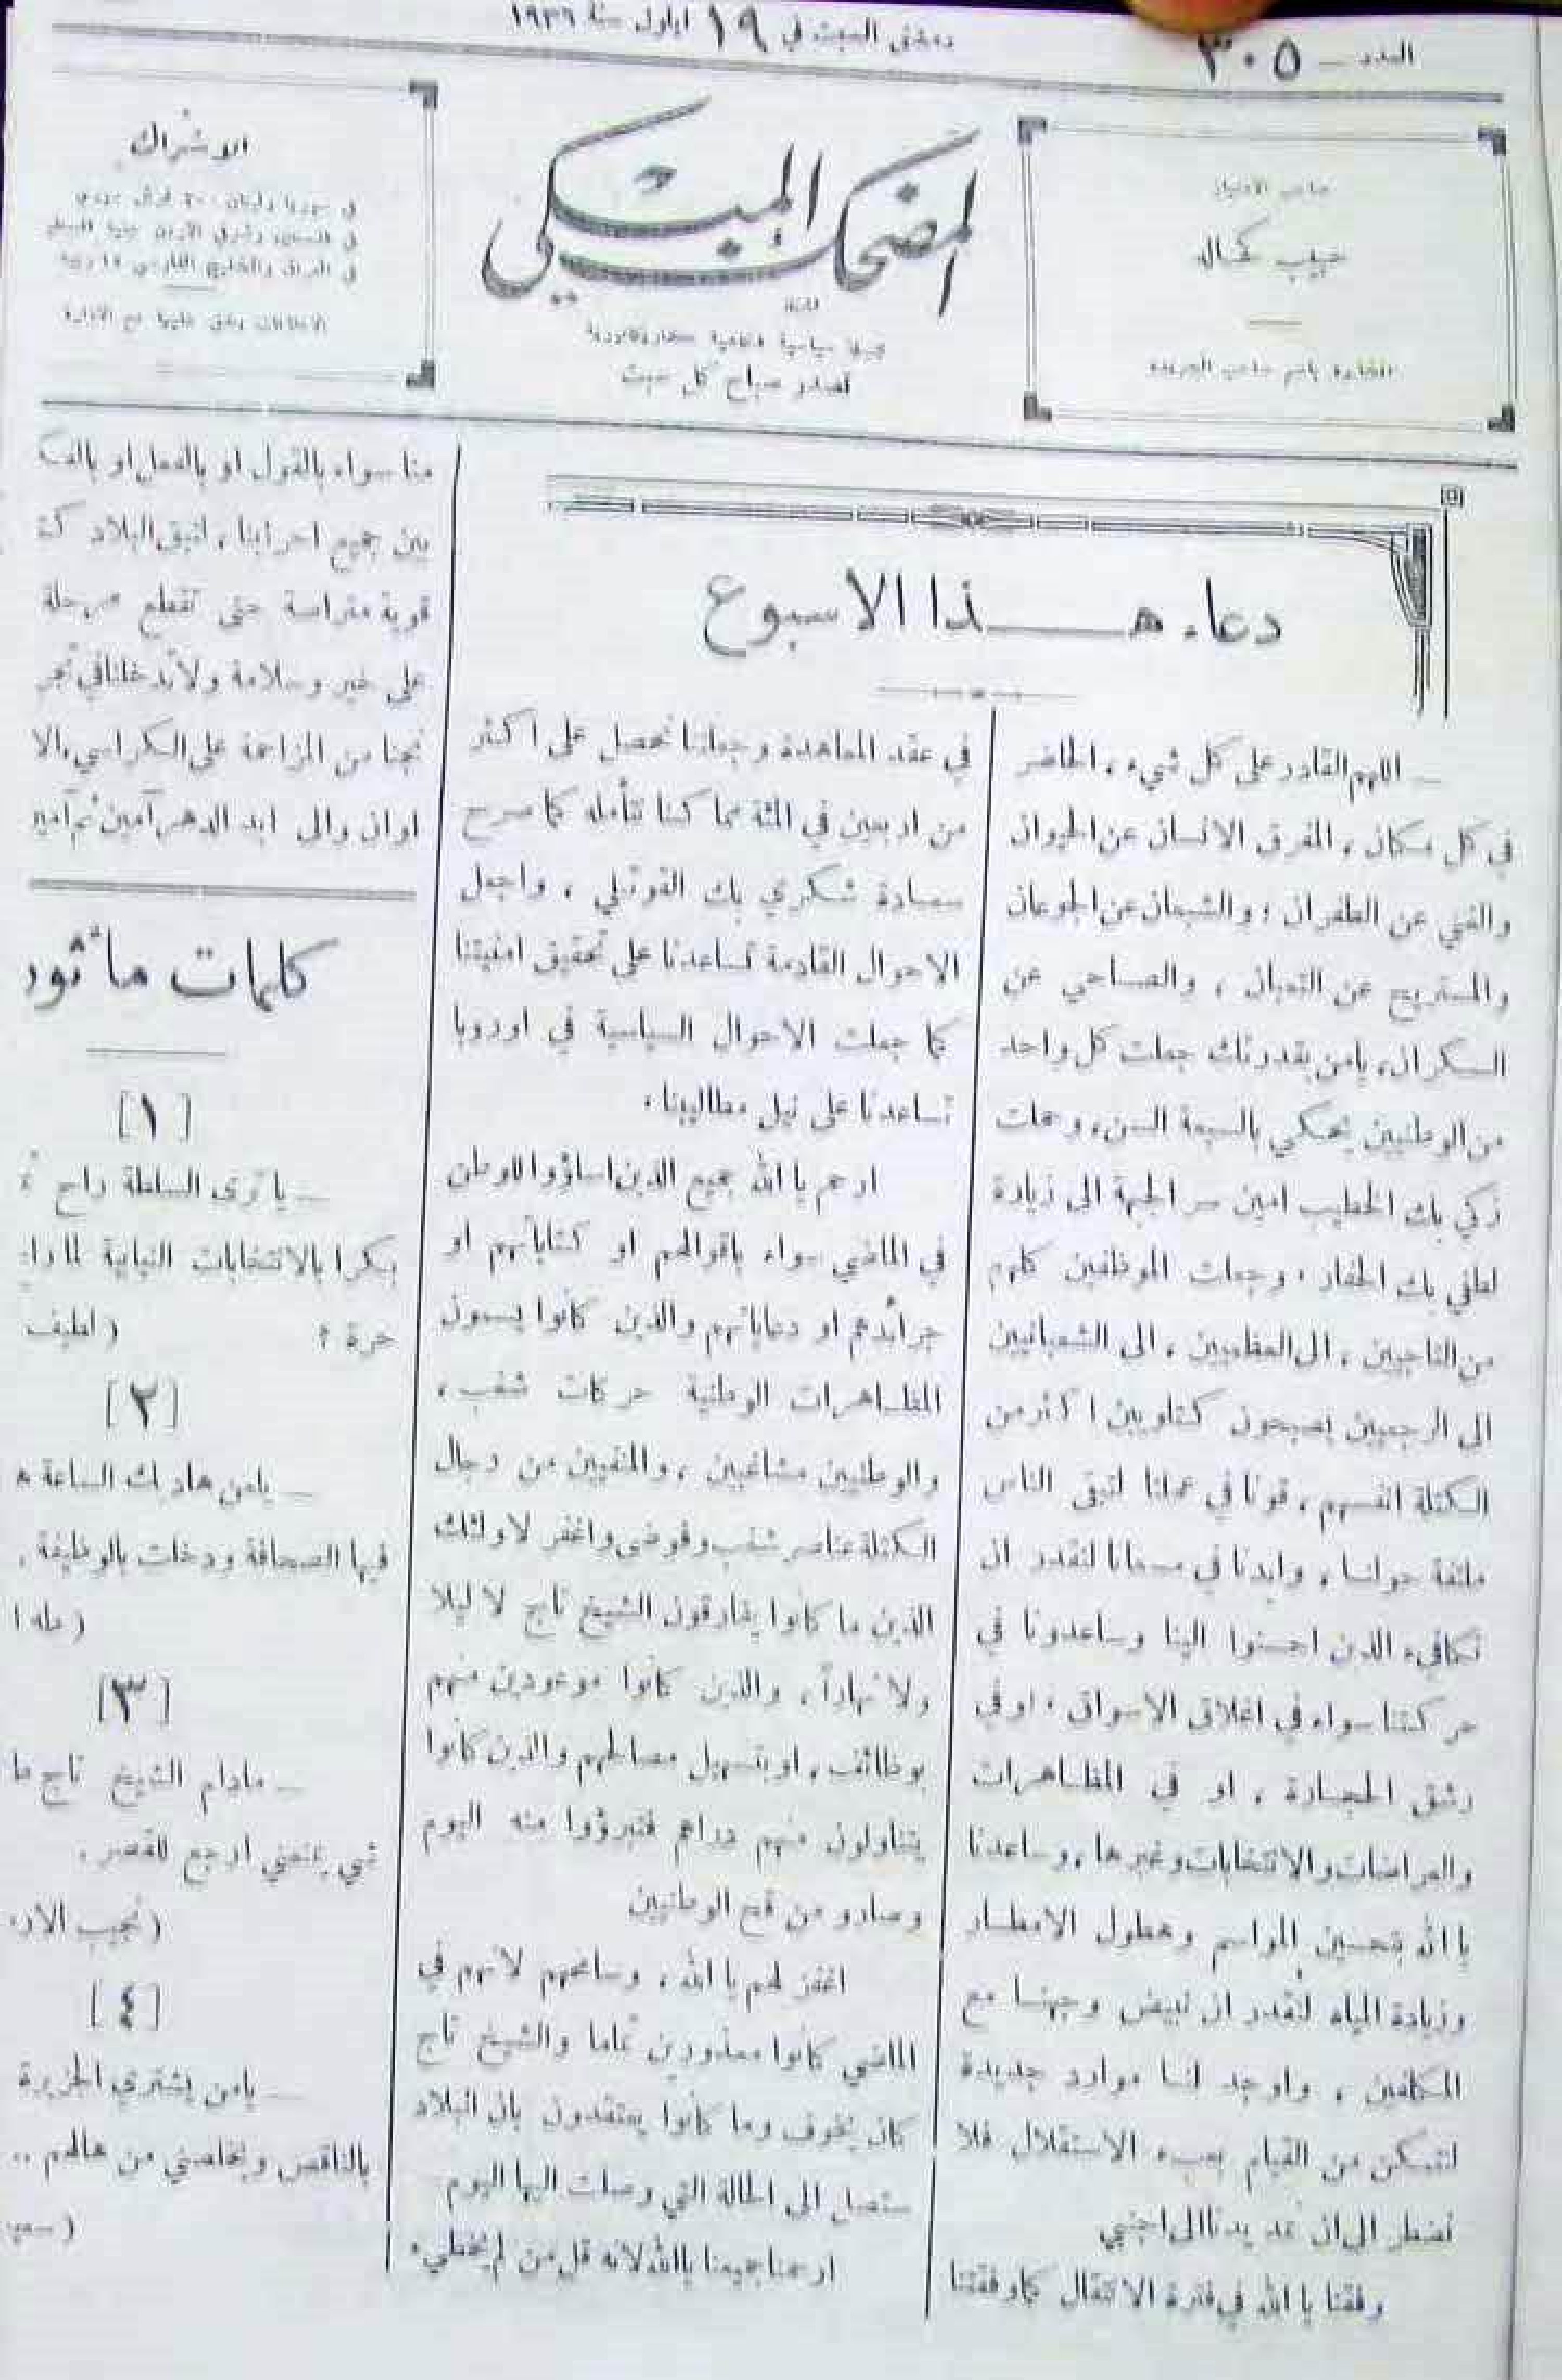 العدد — ٣٠٥
دمشق السبت في ١٩ ايلول سنة ١٩٣٦
صاحب الامتياز
حبيب كحاله
المخابرة باسم صاحب الجريدة
المضحك المبكي
تصدر صباح كل سبت
الاشتراك
دعاء هـــذا الاسبوع
— اللهم القادر على كل شيء ، الحاضر
في كل مكان ، المفرق الانسان عن الحيوان
والغني عن الطفران ، والشبعان عن الجوعان
والمستريح عن التعبان ، والصاحي عن
السكران، يامن بقدرتك جعلت كل واحد
من الوطنيين يحكي بالسبعة السن، وحملت
زكي بك الخطيب امين سر الجبهة الى زيارة
لطفي بك الحفار ، وجعلت الموظفين كلهم
من التاجيين ، الى العظميين ، الى الشعبانيين
الى الرجعيين يصبحون كتلويين اكثر من
الكتلة انفسهم ، قونا في عملنا لتبقى الناس
ملتفة حولنا ، وايدنا في مسعانا لنقدر ان
نكافيء الذين احسنوا الينا وساعدونا في
حركتنا سواء في اغلاق الاسواق ، او في
رشق الحجارة ، او في المظاهرات
والعراضات والانتخابات وغيرها ، وساعدنا
يا الله بتحسين المواسم وهطول الامطار
وزيادة المياه لنقدر ان نبيض وجهنا مع
المكلفين ، واوجد لنا موارد جديدة
لنتمكن من القيام بعبء الاستقلال فلا
نضطر الى ان نمد يدنا الى اجنبي
وفقنا يا الله في فترة الانتقال كما وفقتنا
في عقد المعاهدة وجعلتنا نحصل على اكثر
من اربعين في المئة مما كنا نتأمله كما صرح
سعادة شكري بك القوتلي ، واجعل
الاحوال القادمة تساعدنا على تحقيق امنيتنا
كما جعلت الاحوال السياسية في اوروبا
تساعدنا على نيل مطاليبنا .
ارحم يا الله جميع الذين اساؤوا للوطن
في الماضي سواء باقوالهم او كتاباتهم او
جرائدهم او دعاياتهم والذين كانوا يسمون
المظاهرات الوطنية حركات شغب ،
والوطنيين مشاغبين ، والمنفيين من رجال
الكتلة عناصر شغب وفوضى واغفر لاولئك
الذين ما كانوا يفارقون الشيخ تاج لا ليلا
ولا نهاراً ، والذين كانوا موعودين منهم
بوظائف ، او بتسهيل مصالحهم والذين كانوا
يتناولون منهم دراهم فتبرؤوا منه اليوم
وصارو من قح الوطنيين
اغفر لهم يا الله ، وسامحهم لانهم في
الماضي كانوا معذورين تماما والشيخ تاج
كان يخوف وما كانوا يعتقدون بان البلاد
ستصل الى الحالة التي وصلت اليها اليوم
ارحمنا جميعنا يا الله لانه قل من لم يخطيء
منا سواء بالقول او بالفعل او بالف
بين جميع احزابنا ، لتبق البلاد كت
قوية متراصة حتى تقطع مرحلة
على خير وسلامة ولا تدخلنا في تجر
نجنا من المزاحمة على الكراسي، الا
اوان والى ابد الدهر آمين ثم آمير
كلمات مأثور
[١]
— يا ترى السلطة راح
بكرا بالانتخابات النيابية لما
حرة ؟ (لطيف
[٢]
— يامن هاديك الساعة
فيها الصحافة ودخلت بالوظيفة .
(طه ا
[٣]
— مادام الشيخ تاج ما
شي يمنعني ارجع للقصر .
(نجيب الار
[٤]
— يامن يشتري الجزيرة
بالناقص ويخلصني من هالهم ..